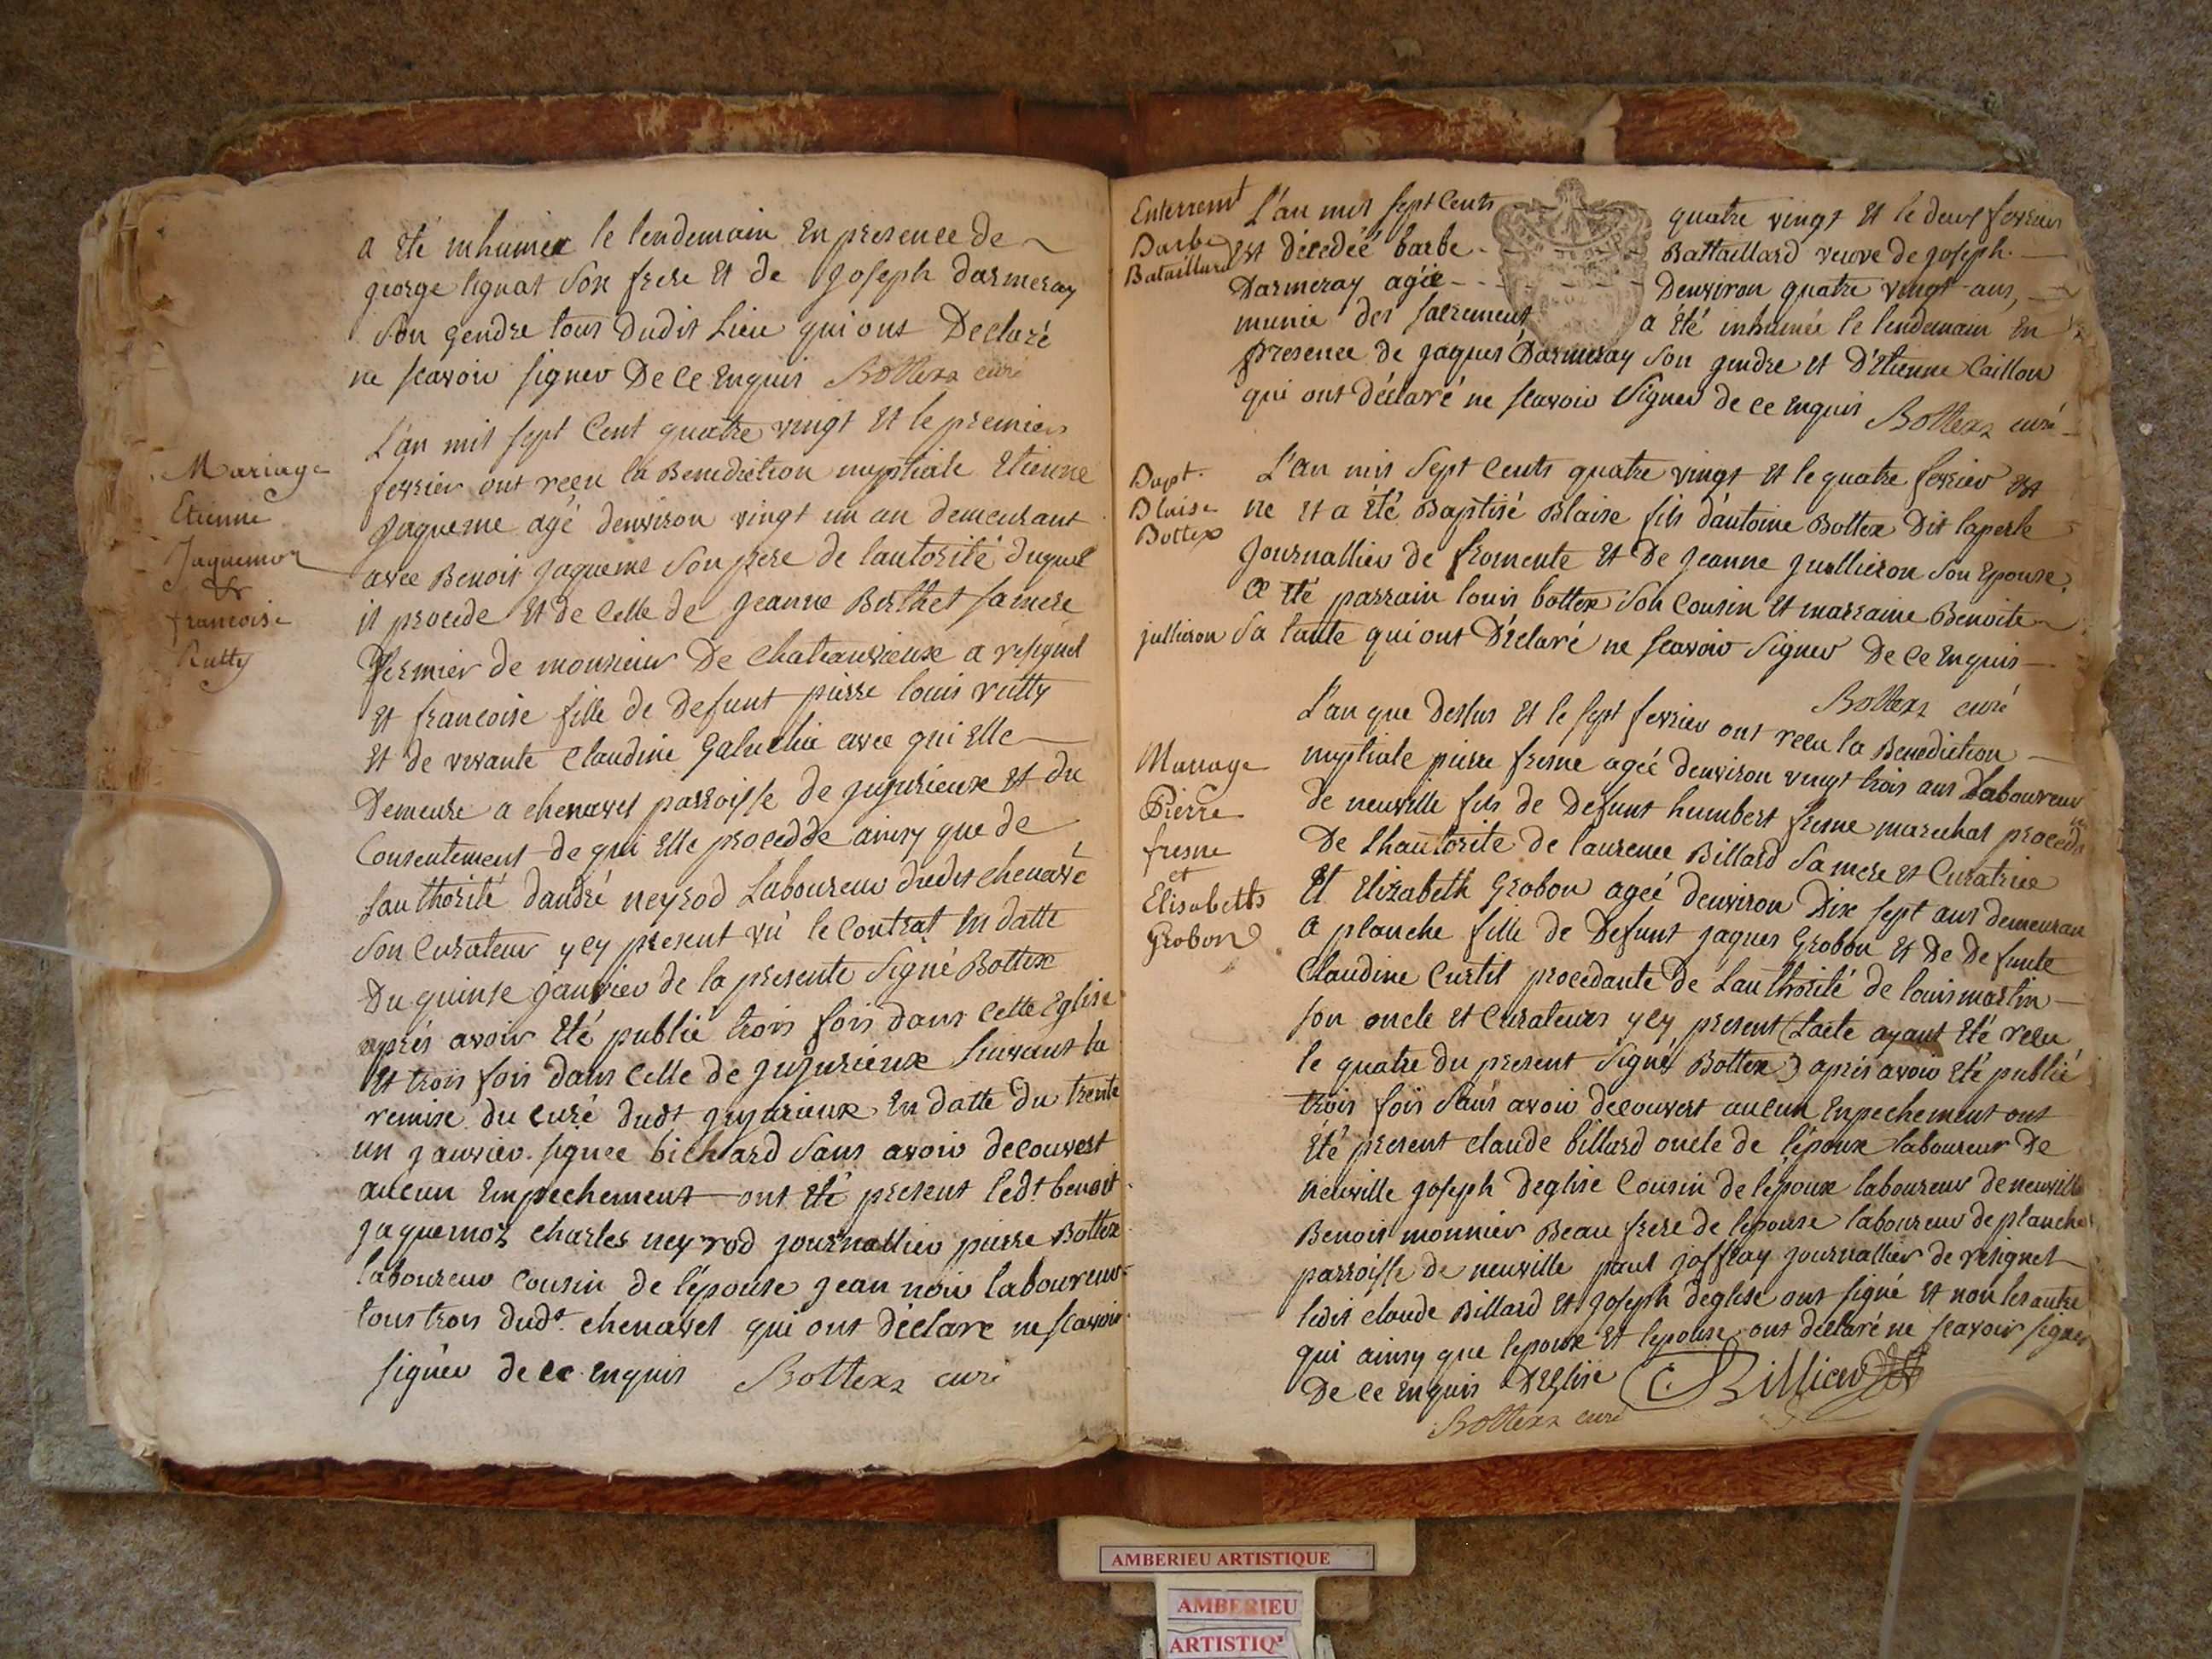 a été inhumée le lendemain En presence de
george lignat Son frere Et de Joseph darmeray
Son gendre tous dudit Lieu qui ont Declaré
ne scavoir signer De Ce Enquis Bottex curé
Mariage
Etienne
Jaquemoz
&
francoise
Rutty
L'an mil sept Cent quatre vingt Et le premier
fevrier ont recu la Benediction nuptiale Etienne
Jaqueme agé denviron vingt un an demeurant
avec Benoit Jaqueme Son pere de lautorité duquel
il procede Et de Celle de Jeanne Berthet sa mere
fermier de monsieur De Chateauvieux a resignel
Et francoise fille de Defunt pierre louis rutty
Et de vivante Claudine Galuchie avec qui Elle
Demeure a chenavel parroisse de Jujurieux Et du
Consentement de qui Elle procedde ainsy que de
Lauthorité dandré neyrod Laboureur dudit chenavel
Son Curateur ycy present vû le Contrat En datte
Du quinse Janvier de la presente Signé Bottex
aprés avoir Eté publié trois fois dans Cette Eglise
Et trois fois dans Celle de Jujurieux Suivant la
remise du curé dudt Jujurieux En datte du trente
un Janvier signée bichard Sans avoir decouvert
aucun Empechement ont Eté present ledt benoit
Jaquemoz Charles neyrod Journallier pierre Bottex
laboureur Cousin de lépouse Jean noir laboureur
tous trois dudt chenavel qui ont déclaré ne scavoir
signer de Ce Enquis Bottex curé
Enterremt
Barbe
Bataillard
L'an mil sept Cents quatre vingt Et le deux fevrier
Est décedée barbe Battaillard veuve de Joseph
Darmeray agée Denviron quatre vingt ans,
munie des sacrements a été inhumée le lendemain En
presence de Jaques Darmeray Son gendre et d'Etienne Caillon
qui ont déclaré ne scavoir Signer de Ce Enquis Bottex curé
Bapt.
Blaise
Bottex
L'an mil Sept Cents quatre vingt Et le quatre fevrier Est
né Et a été Baptisé Blaise fils dantoine Bottex Dit laperle
Journallier de fromente Et De Jeanne Juillieron Son Epouse,
a Eté parrain louis bottex Son Cousin Et marraine Benoite
jullieron Sa tante qui ont Déclaré ne scavoir Signer De Ce Enquis
Bottex curé
Mariage
Pierre
fresne
et
Elisabeth
Grobon
L'an que Dessus Et le sept fevrier ont recu la Benediction
nuptiale pierre fresne agée denviron vingt trois ans Laboureur
de neuville fils de Defunt humbert fresne marechal procedant
De Lhautorité de laurence Billard Sa mere Et Curatrice
Et Elizabeth Grobon ageé denviron Dix sept ans demeurant
a planche fille de Defunt Jaques Grobon Et De Defunte
Claudine Curtil procedante De Lauthorité de louis martin
son oncle Et Curateurs ycy present (Lacte ayant Eté recu
le quatre du present Signé Bottex) aprés avoir Eté publié
trois fois Sans avoir decouvert aucun Enpechement ont
Eté present claude billard oncle de lépoux laboureur De
neuville Joseph deglise Cousin de lépoux laboureur de neuville
Benoit monnier Beau frere de lepouse laboureur de planche
parroisse de neuville paul Joffray Journallier de resignel
ledit claude Billard Et Joseph deglise ont signé Et non les autre
qui ainsy que lepoux Et lepouse ont declaré ne scavoir signer
De Ce Enquis DEglise C. Billiard
Bottex curé
AMBERIEU ARTISTIQUE
AMBERIEU
ARTISTIQ